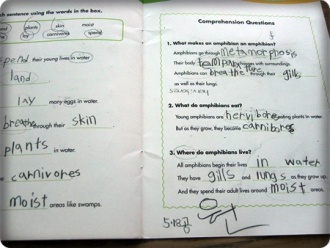 ch sentence using the words in the box.
plants skin moist
lay carnivores spend
spend their young lives in water
land
lay many eggs in water.
breathe through their skin
plants in water.
carnivores
moist areas like swamps.
Comprehension Questions
1. What makes an amphibian an amphibian?
Amphibians go through metamorphosis
Their body changes with surroundings.
Amphibians can breathe through their gills
2. What do amphibians eat?
Young amphibians are eating plants in water.
But as they grow, they become carnibores
3. Where do amphibians live?
All amphibians begin their lives in water
They have gills and lungs as they grow up
And they spend their adult lives around moist areas.